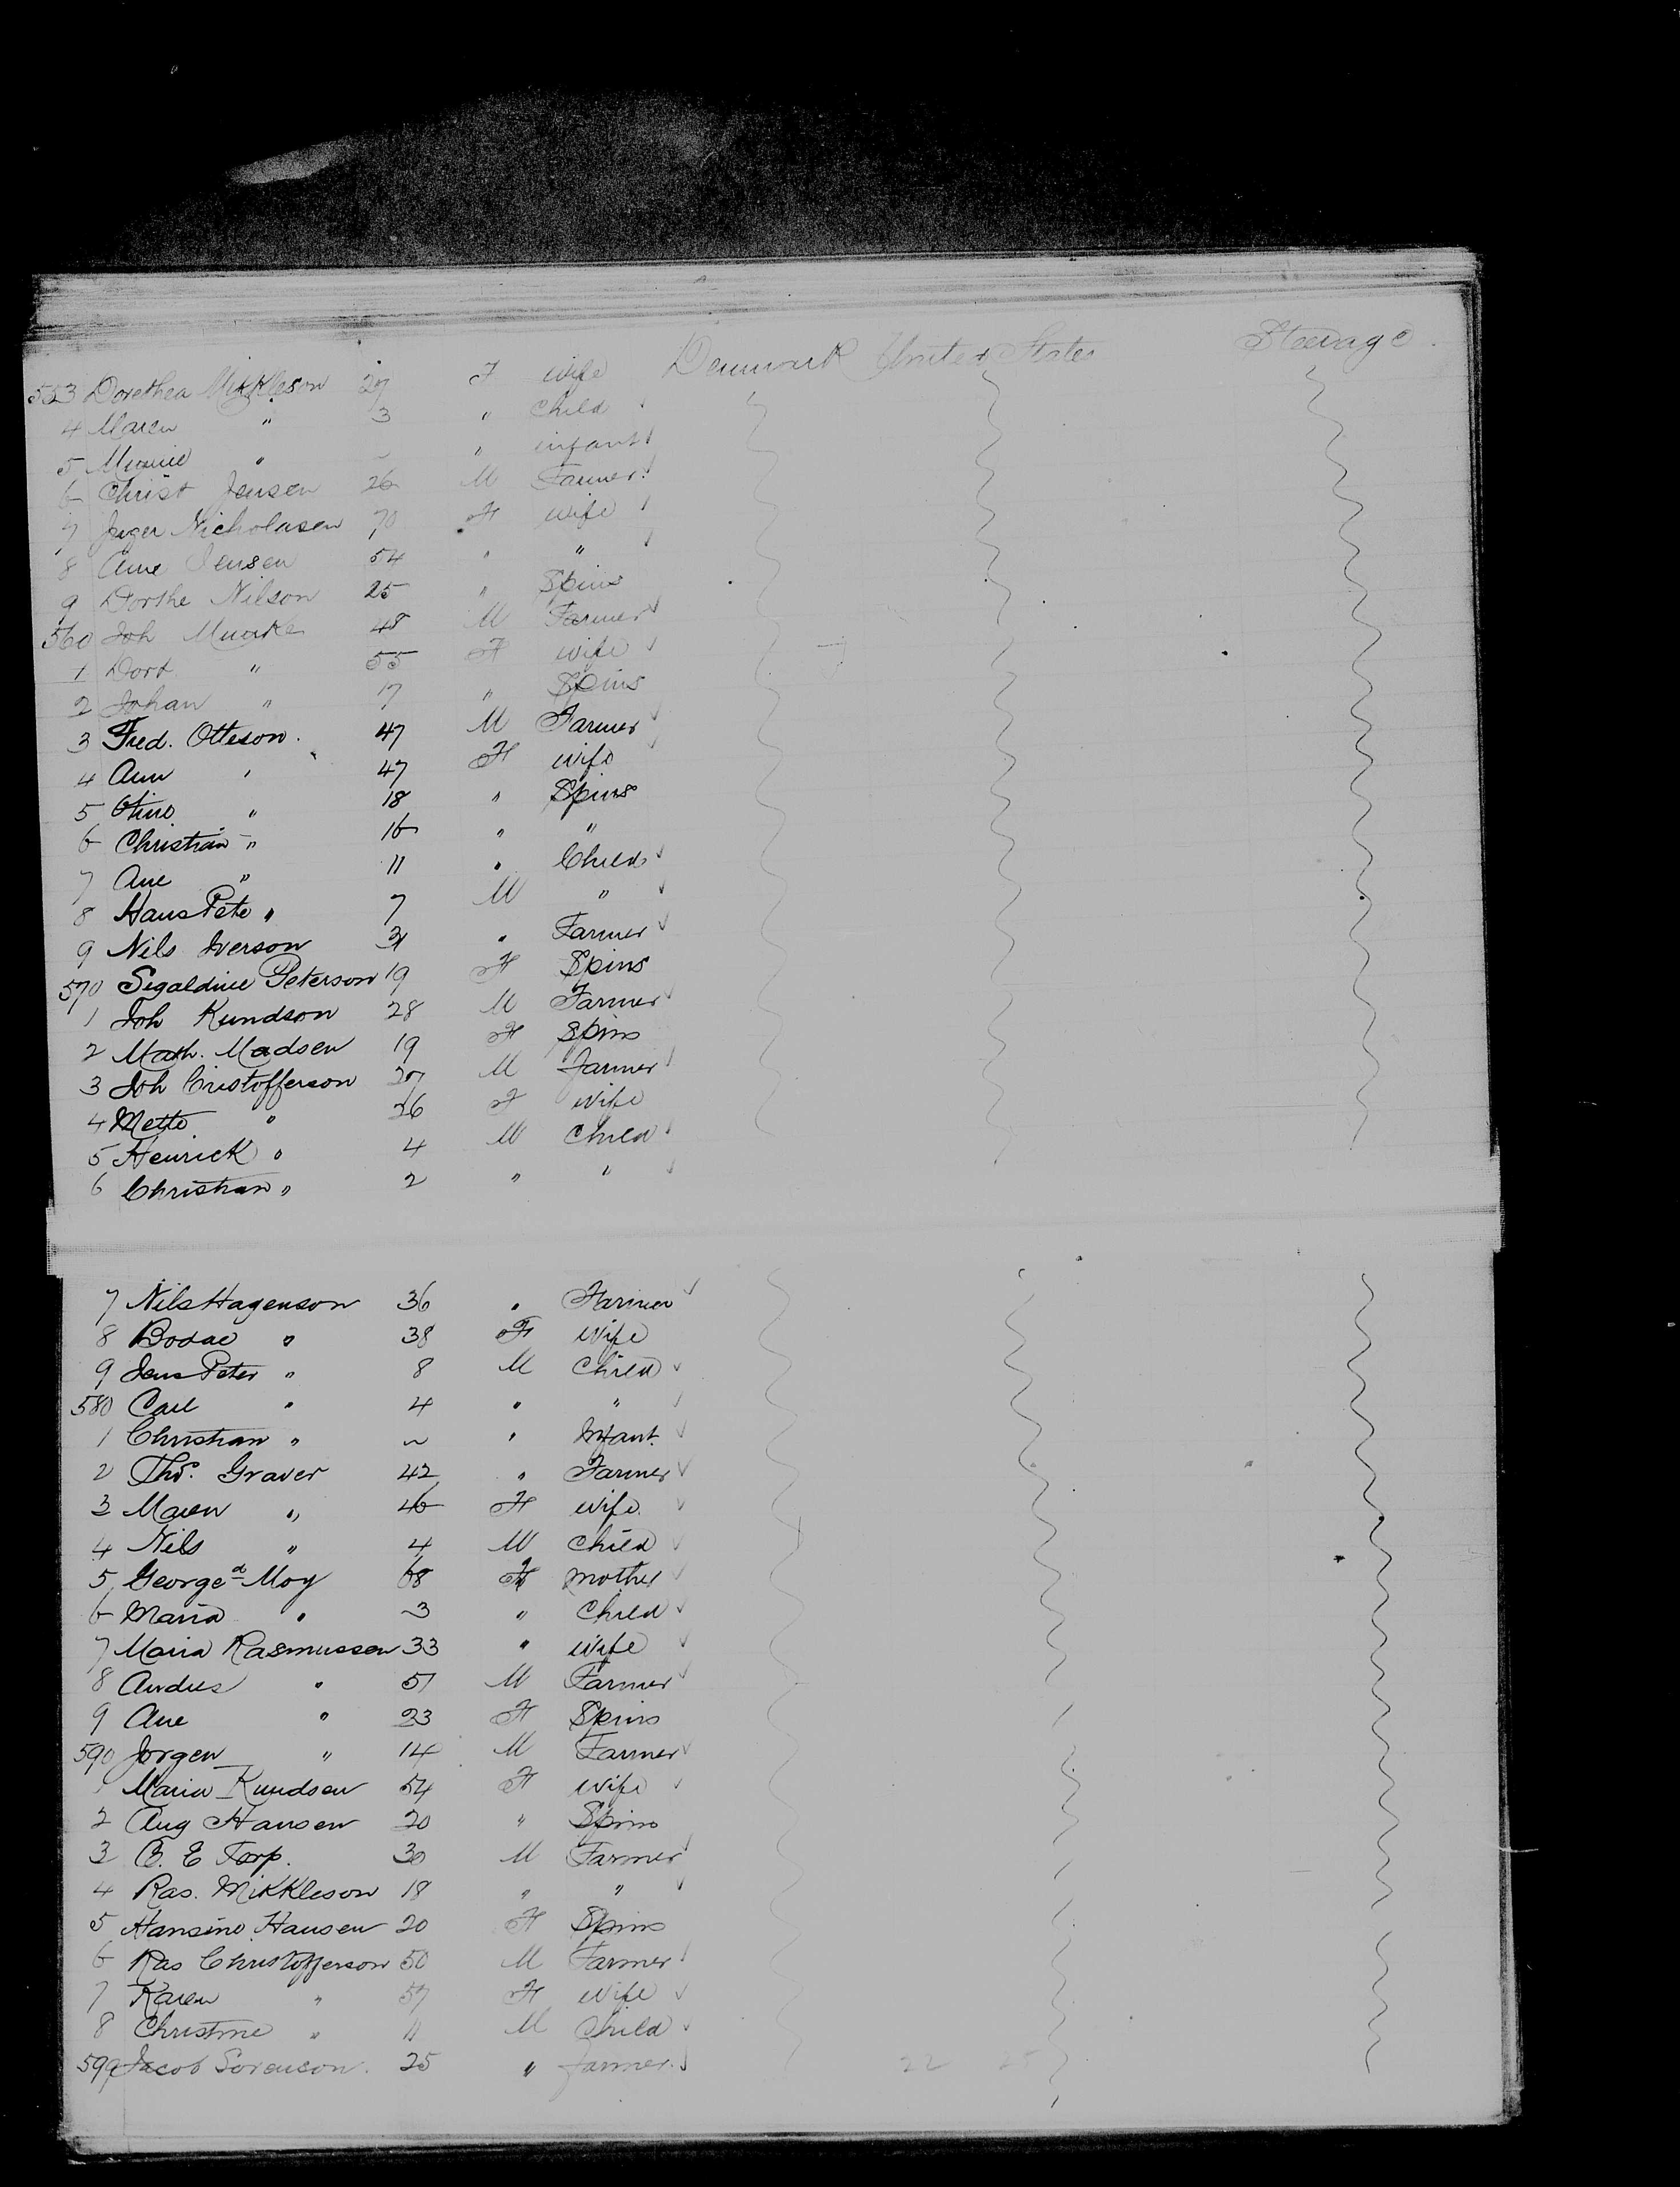 553 Dorethea Mikkleson 27 F wife Denmark United States Steerage
4 Maren " 3 " Child
5 Minnie " ~ " infant
6 Christ Jensen 26 M Farmer
7 Inger Nicholasen 70 F wife
8 Ane Jensen 54 " "
9 Dorthe Nilson 25 " Spins
560 Joh Munke 48 M Farmer
1 Dort " 55 F wife
2 Johan " 17 " Spins
3 Fred. Otteson. 47 M Farmer
4 Ann " 47 F wife
5 Stine " 18 " Spins
6 Christian " 16 " "
7 Ane " 11 " Child
8 Hans Pete " 7 M "
9 Nils Iverson 31 " Farmer
570 Segaldine Peterson 19 F Spins
1 Joh Kundson 28 M Farmer
2 Math. Madsen 19 F Spins
3 Joh Cristofferson 27 M Farmer
4 Mette " 26 F wife
5 Henrick " 4 M Child
6 Christian " 2 " "
7 Nils Hagenson 36 " Farmer
8 Bodae " 38 F wife
9 Jens Peter " 8 M Child
580 Carl " 4 " "
1 Christian " ~ " Infant.
2 Thos. Graver 42 " Farmer
3 Maren " 46 F wife.
4 Nils " 4 M Child
5 George a Moy 68 F mother
6 Maria " 3 " Child
7 Maria Rasmussen 33 " wife
8 Andres " 51 M Farmer
9 Ane " 23 F Spins
590 Jorgen " 14 M Farmer
1 Maria Kundsen 54 F wife
2 Aug Hansen 20 " Spins
3 C. E Torp. 30 M Farmer
4 Ras. Mikkleson 18 " "
5 Hansine Hansen 20 F Spins
6 Ras Christofferson 50 M Farmer
7 Karen " 57 F wife
8 Christine " 11 M Child
599 Jacob Sorenson. 25 " Farmer.